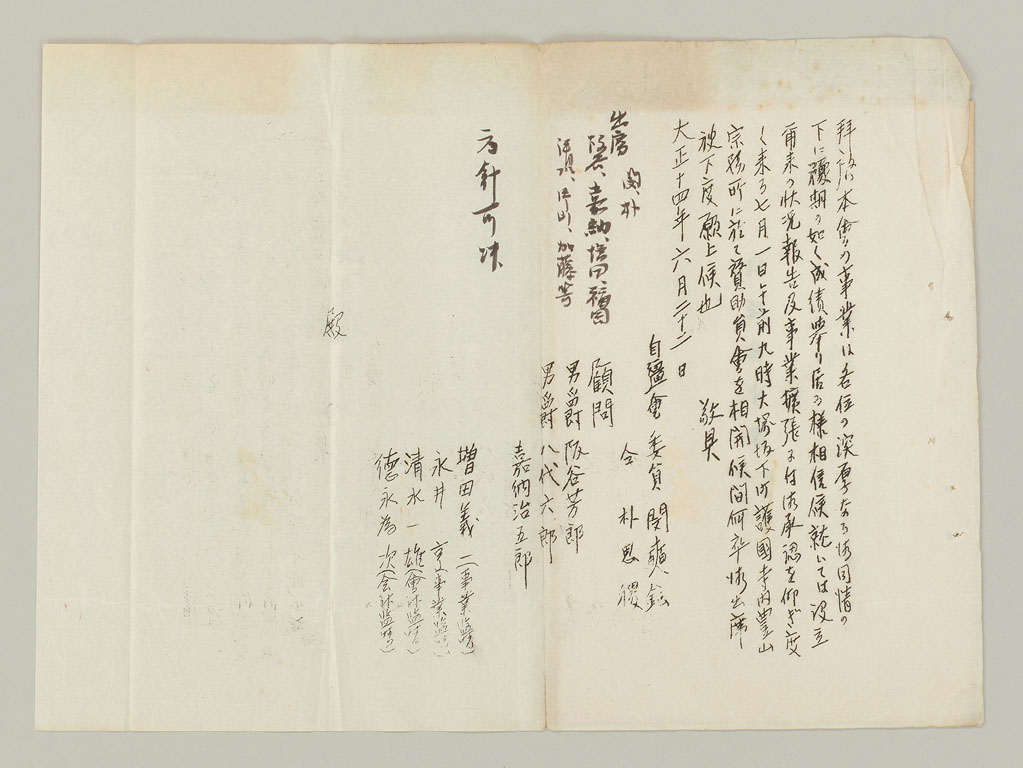 拜啓 本會の事業は各位の深厚なる御同情の
下に豫期の如く成績擧り居る様相信候就いては設立
爾来の狀况報告及事業擴張に付御承認を仰ぎ度
く来る七月一日午前九時大塚坂下町護國寺内豊山
宗務所に於て賛助員會を相開候間何卒御出席
被下度願上候也
敬具
大正十四年六月二十二日
自彊會委員 閔奭鉉
仝 朴思稷
顧問
男爵 阪谷芳郎
男爵 八代六郎
嘉納治五郎
増田義一(事業監督)
永井亨(事業監督)
清水一雄(會計監督)
德永為次(会計監督)
殿
出席 閔、朴
阪谷、嘉納、増田、
加藤等
方針可決